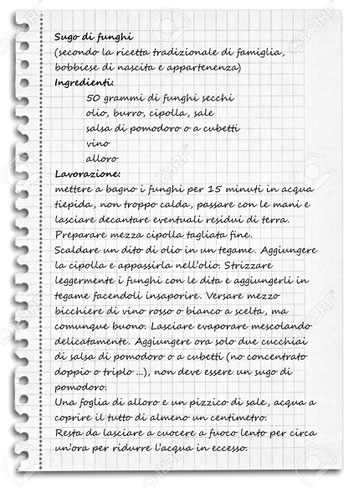 Sugo di funghi
(secondo la ricetta tradizionale di famiglia,
bobbiese di nascita e appartenenza)
Ingredienti:
50 grammi di funghi secchi
olio, burro, cipolla, sale
salsa di pomodoro o a cubetti
vino
alloro
Lavorazione:
mettere a bagno i funghi per 15 minuti in acqua
tiepida, non troppo calda, passare con le mani e
lasciare decantare eventuali residui di terra.
Preparare mezza cipolla tagliata fine.
Scaldare un dito di olio in un tegame. Aggiungere
la cipolla e appassirla nell'olio. Strizzare
leggermente i funghi con le dita e aggiungerli in
tegame facendoli insaporire. Versare mezzo
bicchiere di vino rosso o bianco a scelta, ma
comunque buono. Lasciare evaporare mescolando
delicatamente. Aggiungere ora solo due cucchiai
di salsa di pomodoro o a cubetti (no concentrato
doppio o triplo ...), non deve essere un sugo di
pomodoro.
Una foglia di alloro e un pizzico di sale, acqua a
coprire il tutto di almeno un centimetro.
Resta da lasciare a cuocere a fuoco lento per circa
un'ora per ridurre l'acqua in eccesso.